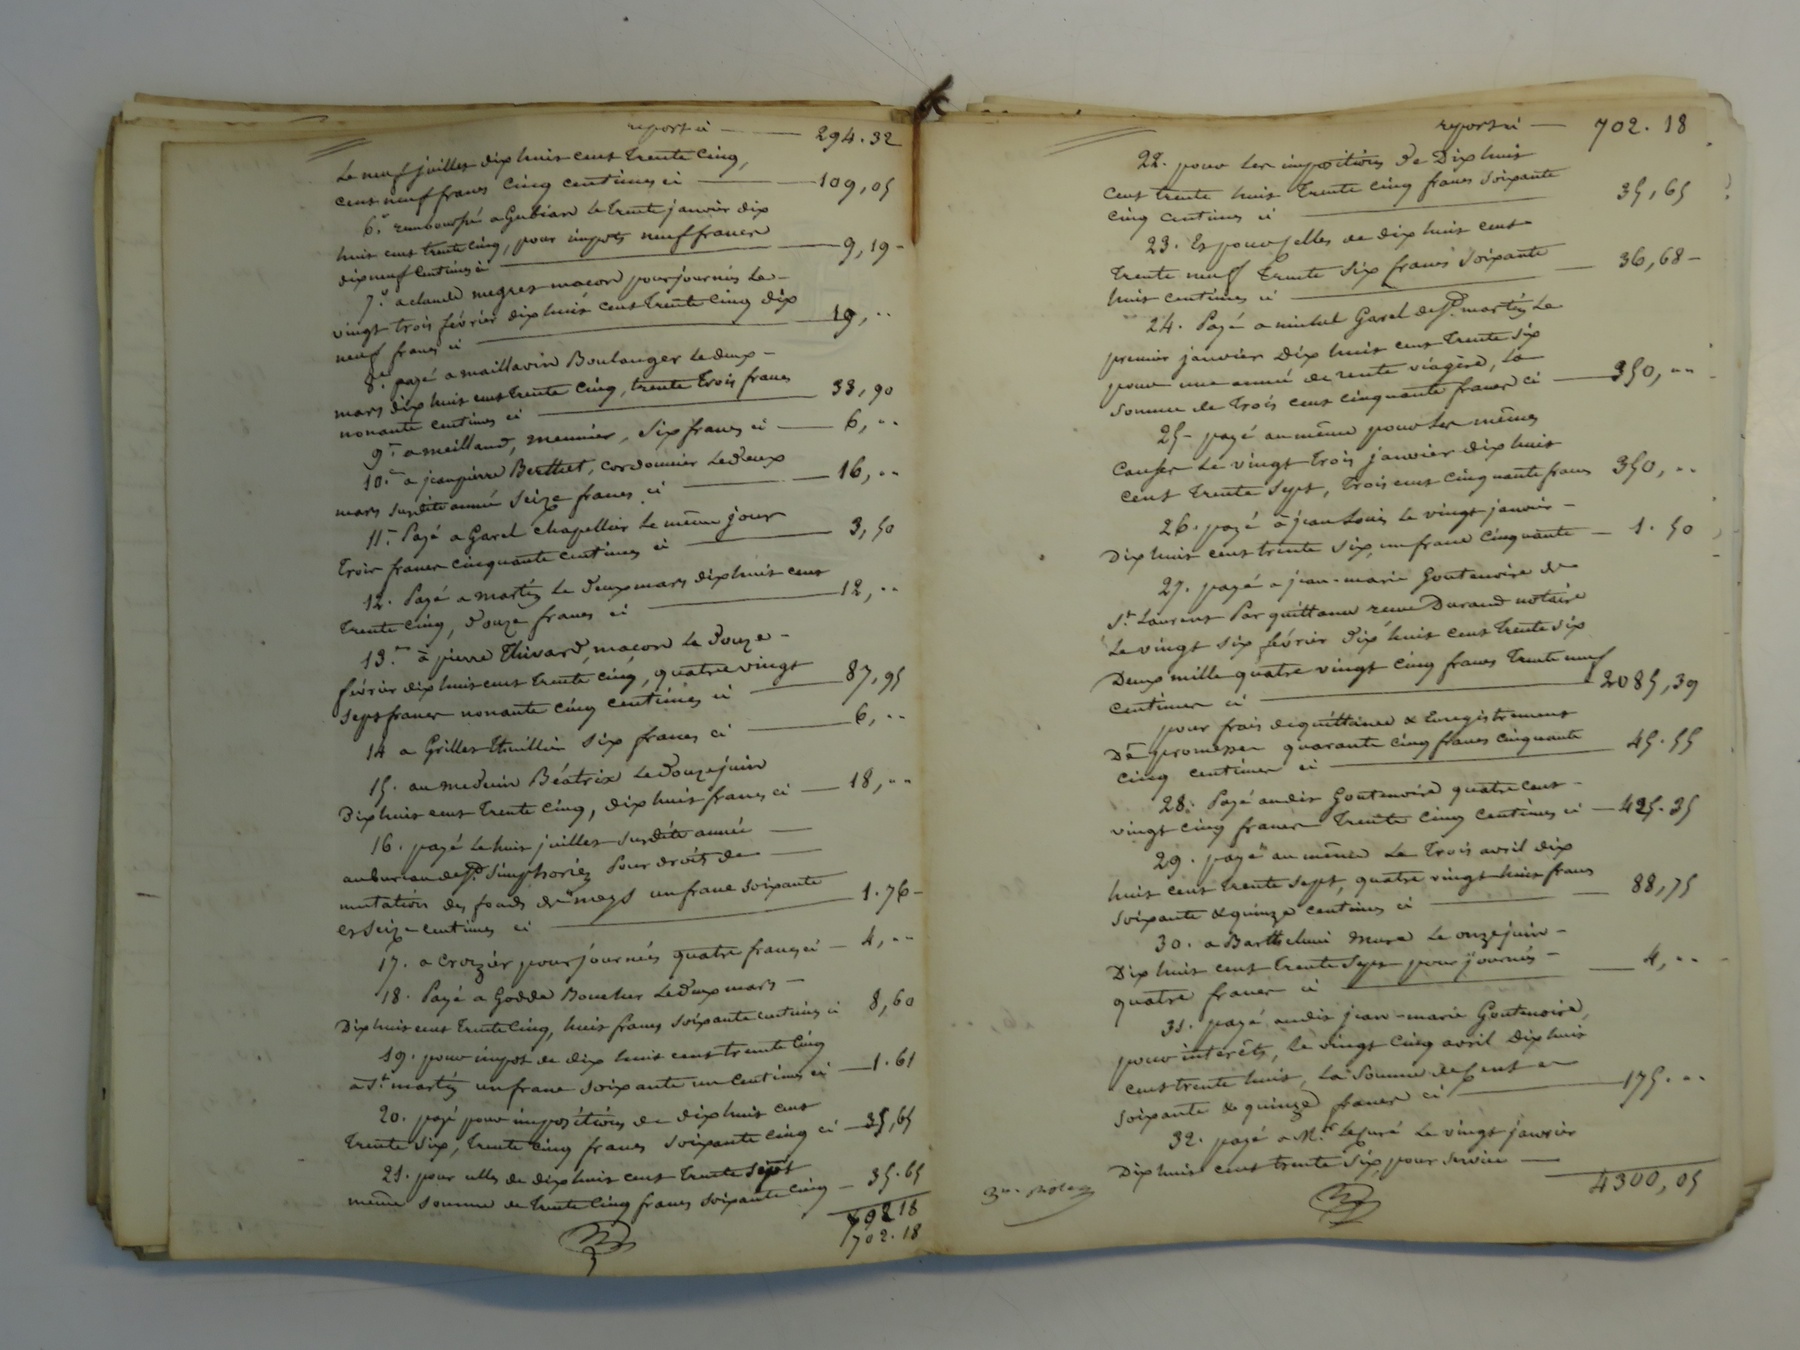 report ci — 294.32
Le neuf juillet dix huit cent trente cinq,
cent neuf francs cinq centimes ci — 109,05
6.° remboursé a Gubian le trente janvier dix
huit cent trente cinq, pour impots neuf francs
dix neuf centimes ci — 9,19-
7.° a claude megret macon pour journés le -
vingt trois février dix huit cent trente cinq dix
neuf francs ci — 19, ..
8.° payé a maillavin Boulanger le deux -
mars dix huit cent trente cinq, trente trois francs
nonante centimes ci — 33,90
9.° a meilland, meunier, six francs ci — 6, ..
10.° a jean pierre Berthet, cordonnier le deux
mars susdite année seize francs ci — 16, ..
11.- Payé a Garel chapellier le même jour
trois francs cinquante centimes ci — 3,50
12. Payé a martin le deux mars dix huit cent
trente cinq, douze francs ci — 12, ..
13.- à pierre Thivard, macon le douze -
février dix huit cent trente cinq, quatre vingt
sept francs nonante cinq centimes ci — 87,95
14 a Grillet thuillier six francs ci — 6, ..
15. au medecin Béatrix le douze juin
Dix huit cent trente cinq, dix huit francs ci — 18, ..
16. payé le huit juillet susdite année —
au bureau de St. Simphorien Pour droits de —
mutation des fonds de meys un franc soixante
et seize centimes ci — 1.76-
17. a crozier pour journés quatre francs ci — 4, ..
18. Payé a Godde Boucher le deux mars -
Dix huit cent trente cinq, huit francs soixante centimes ci 8,60
19. pour impot de dix huit cent trente cinq
a St. martin un franc soixante un centimes ci — 1.61
20. payé pour impositions de dix huit cent
trente six, trente cinq francs soixante cinq ci — 35,65
21. pour celles de dix huit cent trente sept
même somme de trente cinq francs soixante cinq — 35.65
702 18
702.18
report ci — 702.18
22. pour les impositions de Dix huit
cent trente huit trente cinq francs soixante
cinq centimes ci — 35,65
23. Et pour celles de dix huit cent
trente neuf trente six francs soixante
huit centimes ci — 36,68-
24. Payé a michel Garel de St. martin Le
premier janvier dix huit cent trente six
pour une année de rente viagère, la
somme de trois cent cinquante francs ci — 350, ..
25- payé au même pour les mêmes
causes Le vingt trois janvier dix huit
cent trente sept, trois cent cinquante francs 350, ..
26. payé à jean Louis le vingt janvier -
Dix huit cent trente six, un franc cinquante — 1.50
27. payé a jean-marie Goutenoire de
St. Laurent Par quittance recue Durand notaire
Le vingt six février dix huit cent trente six
Deux mille quatre vingt cinq francs trente neuf
centimes ci — 2085,39
pour frais de quittance & Enregistrement
De promesses quarante cinq francs cinquante
cinq centimes ci — 45.55
28. Payé au dit Goutenoire quatre cent -
vingt cinq francs trente cinq centimes ci — 425.35
29. payé au même Le trois avril dix
huit cent trente sept, quatre vingt huit francs
soixante & quinze centimes ci — 88,75
30. a Barthelemi mure Le onze juin -
Dix huit cent trente sept pour journés -
quatre francs ci — 4, ..
31. payé au dit jean-marie Goutenoire,
pour intérêts, le vingt cinq avril dix huit
cent trente huit, la somme de Cent
soixante & quinze francs ci — 175. ..
32. payé a Mr. le Curé Le vingt janvier
Dix huit cent trente six, pour service —
4300,05